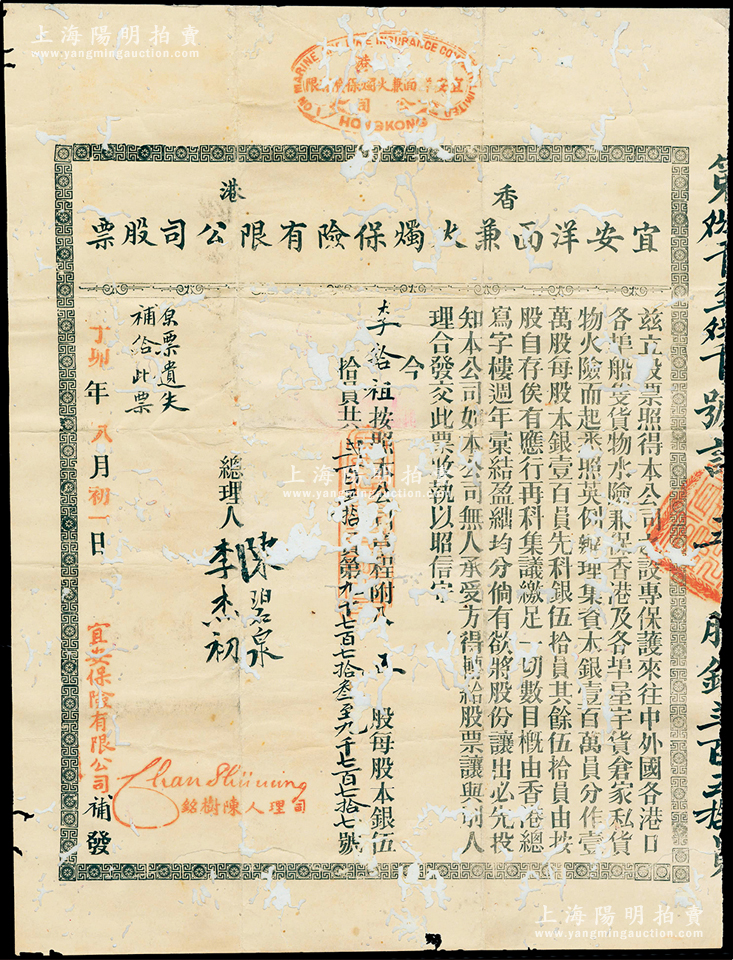 上海陽明拍賣
www.yangmingauction.com
上海陽明拍賣
www.yangmingauction.com
ON MARINE FIRE INSURANCE CO LIMITED
HONGKONG
香港
宜安洋面兼火燭保險有限公司股票
茲立股票照得本公司設專保護來往中外國各港口
各埠船隻貨物水險兼保香港及各埠屋宇貨倉家私貨
物火險而起悉照英例辦理集資本銀壹百萬員分作壹
萬股每股本銀壹百員先科銀伍拾員其餘伍拾員由按
股自存俟有應行再科集議繳足一切數目概由香港總
寫字樓週年彙結盈絀均分倘有欲將股份讓出必先投
知本公司如本公司無人承受方得轉給股票讓與別人
理合發交此票收執以昭信守
今
李 祖按照本公司章程附入 股每股本銀伍
拾員共 百 拾 員第九千七百七拾叁至九千七百七拾七號
總理人
陳碧泉
李杰初
原票遺失
補給此票
丁卯年八月初一日
宜安保險有限公司補發
Chan Shu ming
司理人陳樹銘
上海陽明拍賣
www.yangmingauction.com
上海陽明拍賣
www.yangmingauction.com